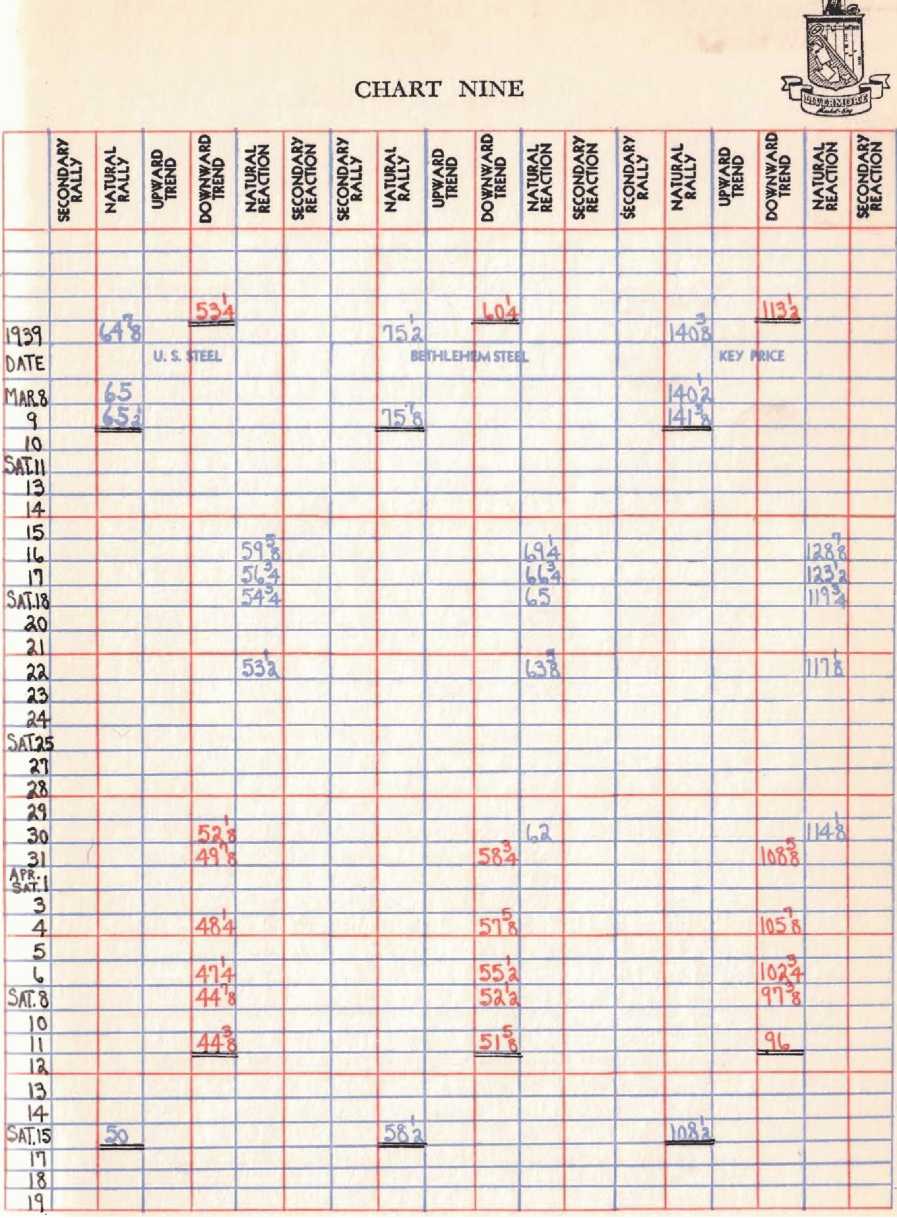 LIVERMORE
Market Key
CHART NINE
SECONDARY RALLY NATURAL RALLY UPWARD TREND DOWNWARD TREND NATURAL REACTION SECONDARY REACTION SECONDARY RALLY NATURAL RALLY UPWARD TREND DOWNWARD TREND NATURAL REACTION SECONDARY REACTION SECONDARY RALLY NATURAL RALLY UPWARD TREND DOWNWARD TREND NATURAL REACTION SECONDARY REACTION
53 1/4 60 1/4 113 1/2
1939 64 7/8 75 1/2 140 3/8
DATE U. S. STEEL BETHLEHEM STEEL KEY PRICE
MAR.8 65 140 1/2
9 65 1/2 75 7/8 141 3/8
10
SAT.11
13
14
15
16 59 5/8 69 1/4 128 7/8
17 56 3/4 66 3/4 123 1/2
SAT.18 54 3/4 65 119 3/4
20
21
22 53 1/2 63 5/8 117 1/8
23
24
SAT.25
27
28
29
30 52 1/8 62 114 1/8
31 49 7/8 58 3/4 108 5/8
APR.
SAT.1
3
4 48 1/4 57 5/8 105 7/8
5
6 47 1/4 55 1/2 102 3/4
SAT.8 44 7/8 52 1/2 97 3/8
10
11 44 3/8 51 5/8 96
12
13
14
SAT.15 50 58 1/2 108 1/2
17
18
19